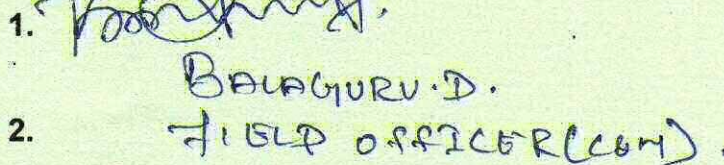 1.
BALAGURU.D.
2. FIELD OFFICER (CGM)